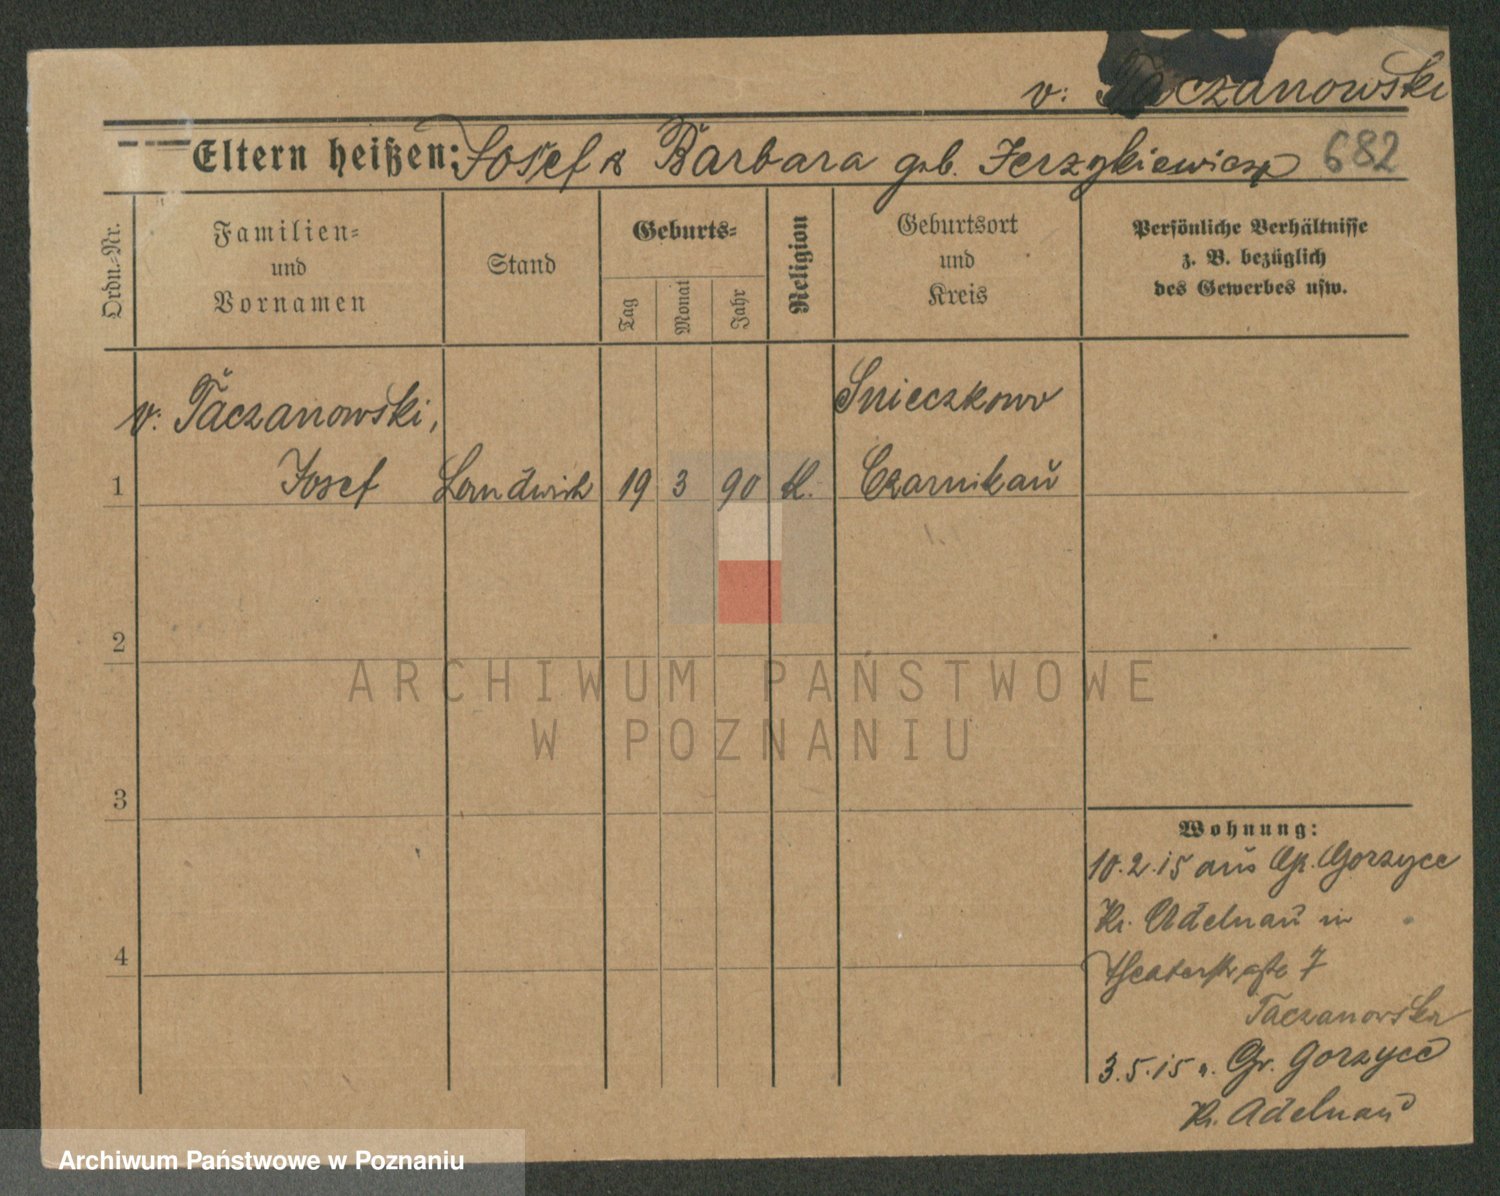 v: Taczanowski
Eltern heißen: Josef & Barbara geb. Jerzykiewicz 682
Ordn.-Nr.
Familien-
und
Vornamen
Stand
Geburts-
Tag
Monat
Jahr
Religion
Geburtsort
und
Kreis
Persönliche Verhältnisse
z. B. bezüglich
des Gewerbes usw.
v: Taczanowski, Snieczkowo
1 Josef Landwirt 19 3 90 k. Czarnikau
2
3
4
Wohnung:
10.2.15 aus Gr. Gorzyce
Kr. Adelnau in
Theaterstraße 7
Taczanowska
3.5.15 n. Gr. Gorzyce
Kr. Adelnau
ARCHIWUM PAŃSTWOWE
W POZNANIU
Archiwum Państwowe w Poznaniu